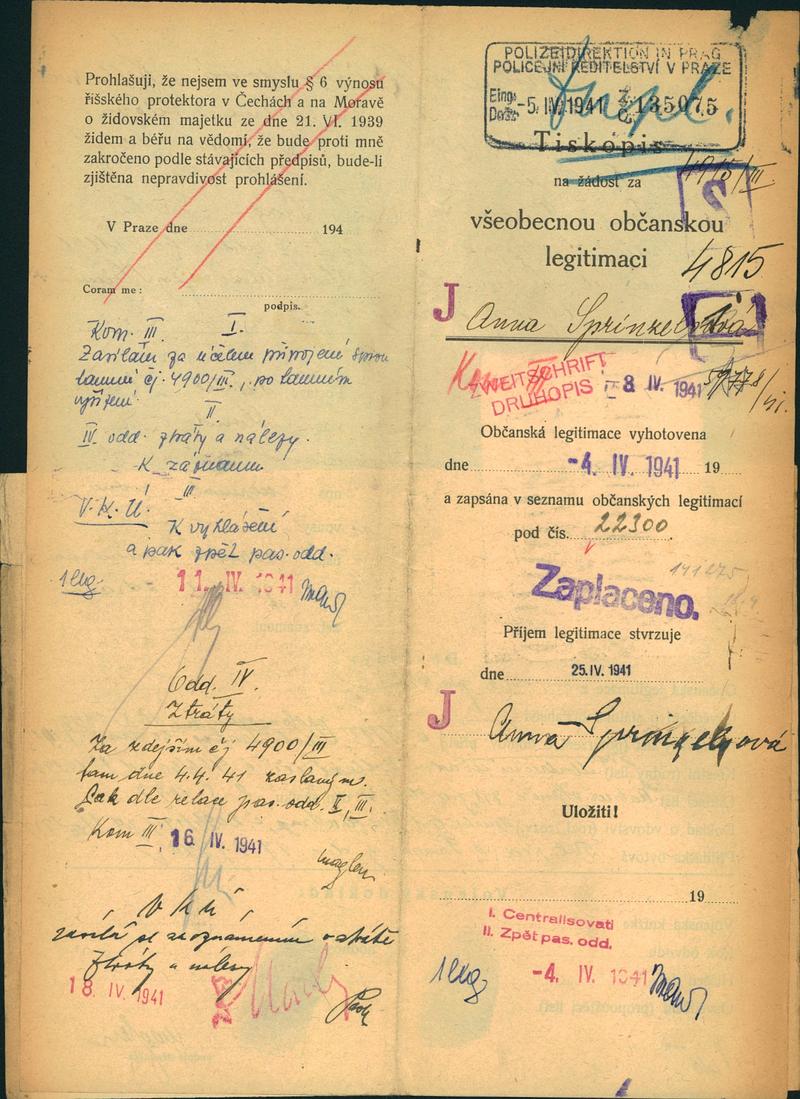 Prohlašuji, že nejsem ve smyslu § 6 výnosu
říšského protektora v Čechách a na Moravě
o židovském majetku ze dne 21. VI. 1939
židem a béřu na vědomí, že bude proti mně
zakročeno podle stávajících předpisů, bude-li
zjištěna nepravdivost prohlášení.
V Praze dne 194
Coram me:
podpis.
Kom. III. I.
Zasílám za účelem připojení
čj. 4900/III., po
vyřízení
II
IV. odd. ztráty a nálezy.
K záznamu
III
V.K.Ú.
K vyhlášení
a pak zpět pas. odd.
11. IV. 1941
Odd. IV.
Ztráty
Za zdejším čj 4900/III
tam dne 4.4. 41 zaslaným.
dle relace pas. odd. II, III.
Kom III. 16. IV. 1941
V K Ú
ztráty a nálezy
18. IV. 1941
POLIZEIDIREKTION IN PRAG
POLICEJNÍ ŘEDITELSTVÍ V PRAZE
Eing. Došlo -5. IV. 1941 Z. Č. 135075
Dupl.
Tiskopis
4915/III
na žádost za
S
všeobecnou občanskou
legitimaci
4815
J Anna Sprinzelová
Kom III
ZWEITSCHRIFT
DRUHOPIS
8 IV. 1941
Občanská legitimace vyhotovena
dne -4. IV. 1941 19
a zapsána v seznamu občanských legitimací
pod čís. 22300
Zaplaceno.
Příjem legitimace stvrzuje
dne 25. IV. 1941
J Anna Sprinzelová
Uložiti!
19
I. Centralisovati
II. Zpět pas. odd.
-4. IV. 1941